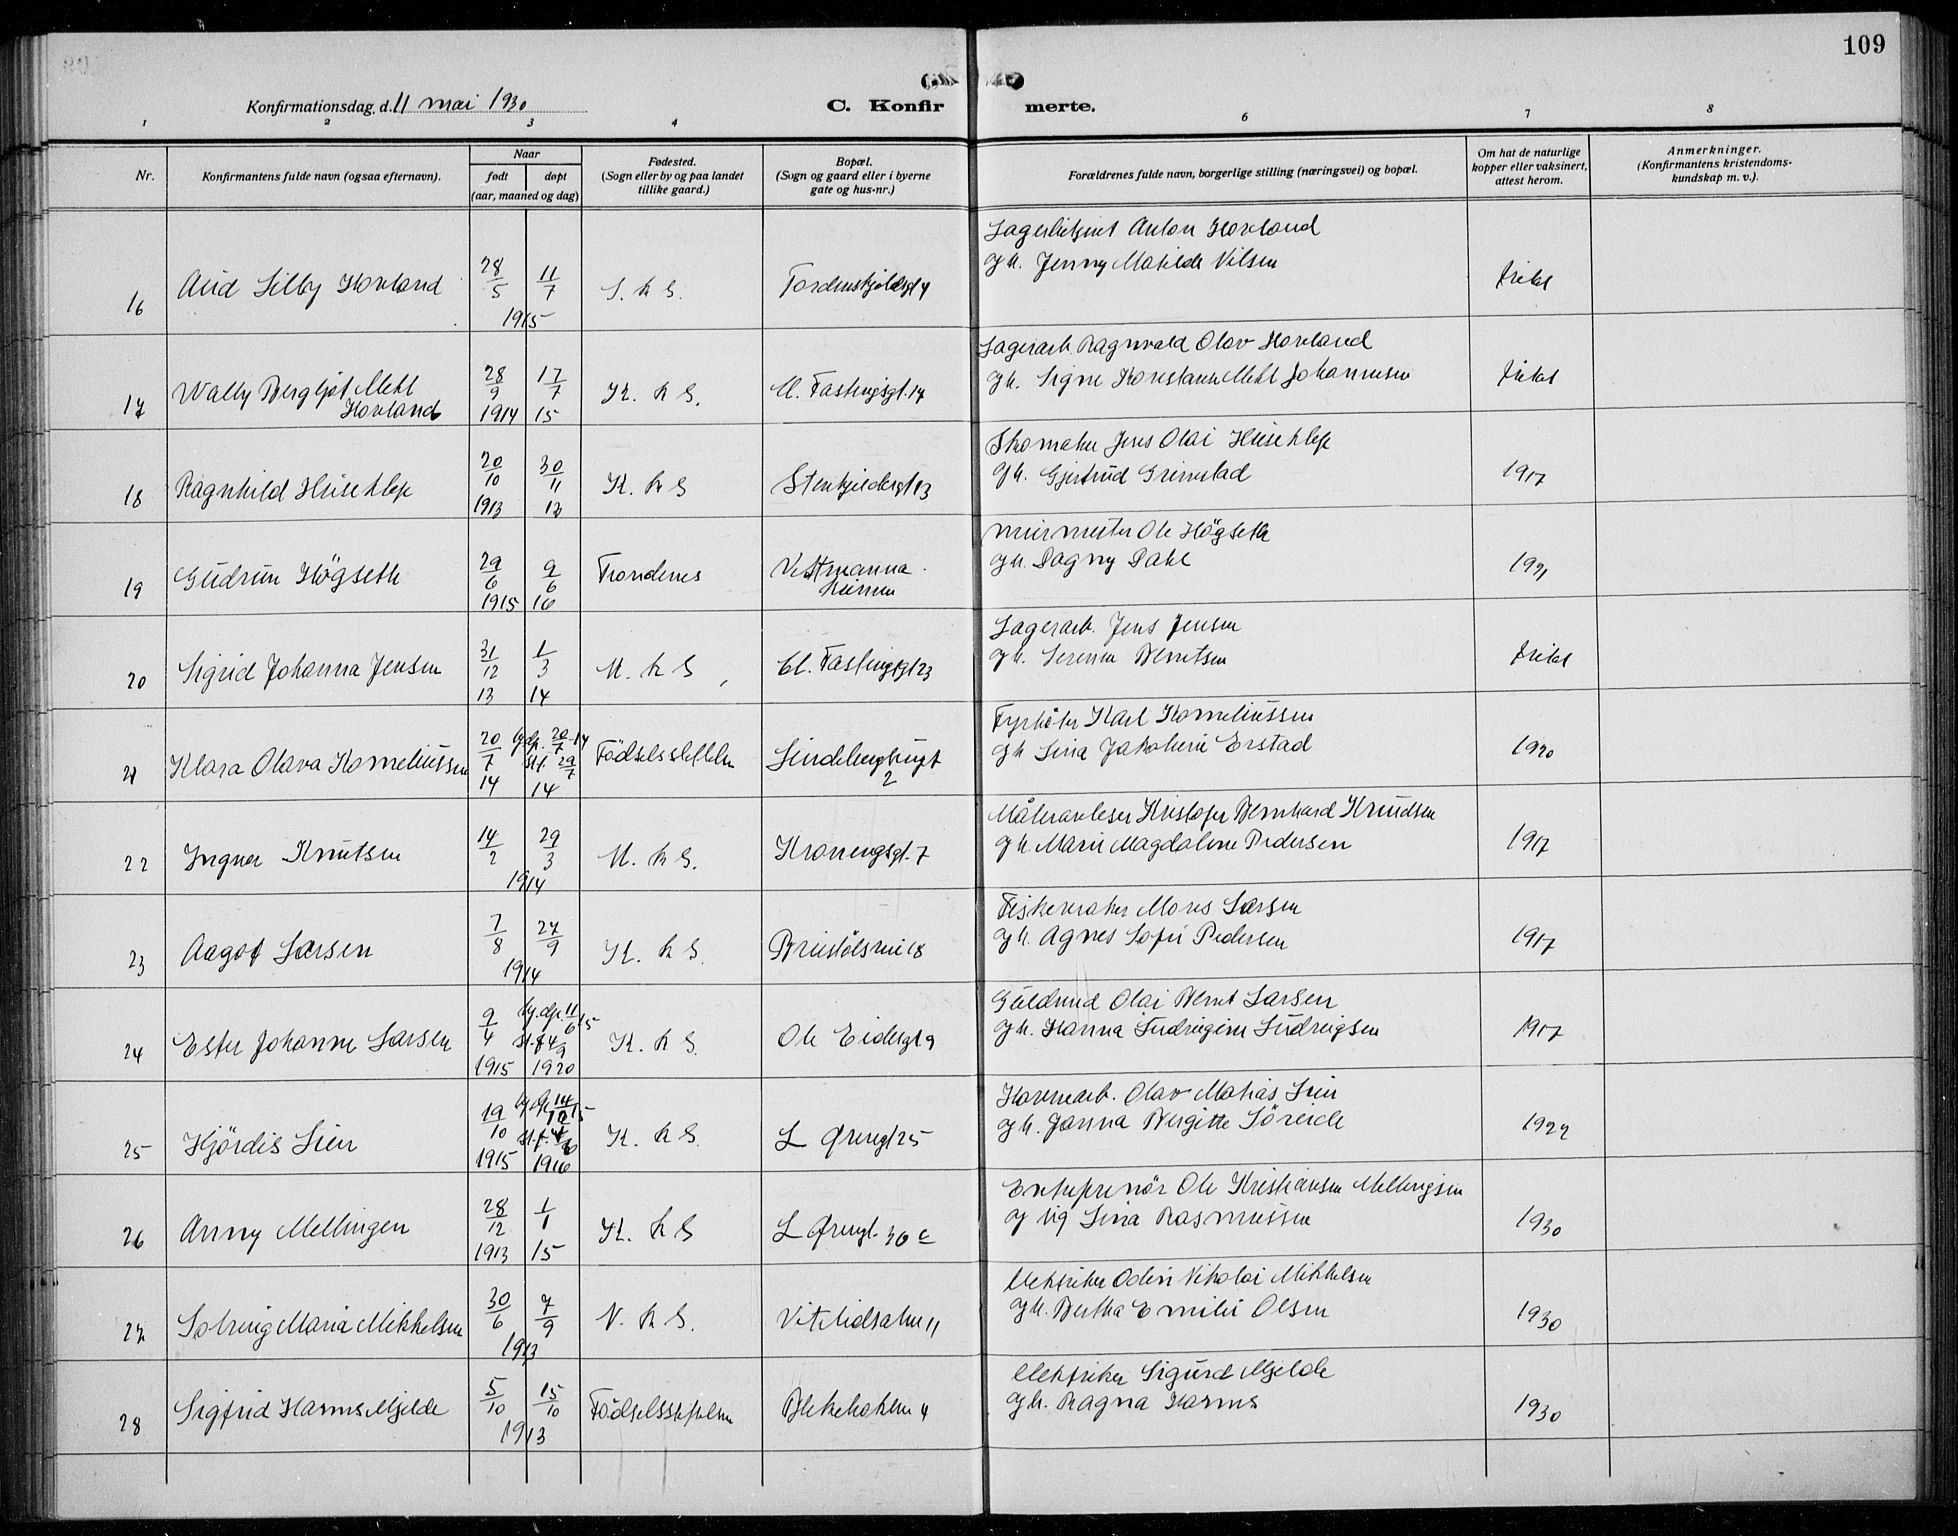 109
Konfirmationsdag. d. 11 mai 1930
C. Konfir merte.
1 2 3 4 6 7 8
Nr.
Konfirmantens fulde navn (ogsaa efternavn).
Naar
født døpt
(aar, maaned og dag)
Fødested.
(Sogn eller by og paa landet
tillike gaard.)
Bopæl.
(Sogn og gaard eller i byerne
gate og hus-nr.)
Forældrenes fulde navn, borgerlige stilling (næringsvei) og bopæl.
Om hat de naturlige
kopper eller vaksinert,
attest herom.
Anmerkninger.
(Konfirmantens kristendoms-
kundskap m. v.).
16 Aud Hovland 28/5 11/7 1915 S. k S. Tordenskjoldsgt 4
Anton Hovland
g h. Jenny Matilde Nilsen
fritat
17 Wally Bergljot Mehl
Hovland
28/9 1914 17/7 15 K. k S. Cl. Fastingsgt. 14
Lagerarb. Ragnvald Olav Hovland
g h. Signe Mehl Johannesen
fritat
18 Ragnhild Huseklep 20/10 1913 30/11 13 K. k S
Skomaker Jens Olai Huseklep
g h. Gjertrud Grimstad
1917
19 Gudrun Högseth 29/6 1915 9/6 16 Trondenes Vestmanna-
heimen
murmester Ole Högseth
g h. Dagny Dahl
20 Sigrid Johanna Jensen 31/12 13 1/3 14 M. k S Cl. Fastingsgt 23
Lagerarb. Jens Jensen
g h. Berntsen
fritat
21 Klara Olava Korneliussen 20/7 14 hj.dp. 20/7 14 st.f. 29/7 14 Födselsstiftelsen
2
Fyrböter Karl Korneliussen
g h Lina Jakobine Erstad
1920
22 Ingver Knutsen 14/2 29/3 1914 M. k S. Kronengsgt. 7
Måleravleser Kristofer Bernhard Knudsen
g h. Marie Magdalene Pedersen
1917
23 Aagot Larsen 7/8 27/9 1914 K. k S.
Fiskevraker Mons Larsen
g h. Agnes Sofie Pedersen
1917
24 Ester Johanne Larsen 9/4 1915 hj.dp. 11/6 15 st.f 4/9 1920 K. k S. Ole Eidesgt. 9
Olai Bernt Larsen
g h. Hanna Ludvigsen
1917
25 Hjördis Lien 19/10 1915 1916 K. k S. L Øvregt 25
Havnearb. Olav Matias Lien
g h. Janna Bergitte Söreide
26 Anny Mellingen 28/12 1913 1/1 15 K. k S L Øvregt. 36 c
Entreprenör Ole Kristiansen
og Lina Rasmussen
1930
27 Solveig Maria Mikkelsen 30/6 7/9 1913 N. k S.
Elektriker Odin Nikolai Mikkelsen
g h. Bertha Emilie Olsen
1930
28 Sigfrid Harms Mjelde 5/10 15/10 1913 Födselsstiftelsen
Elektriker Sigurd Mjelde
g h. Ragna Harms
1930